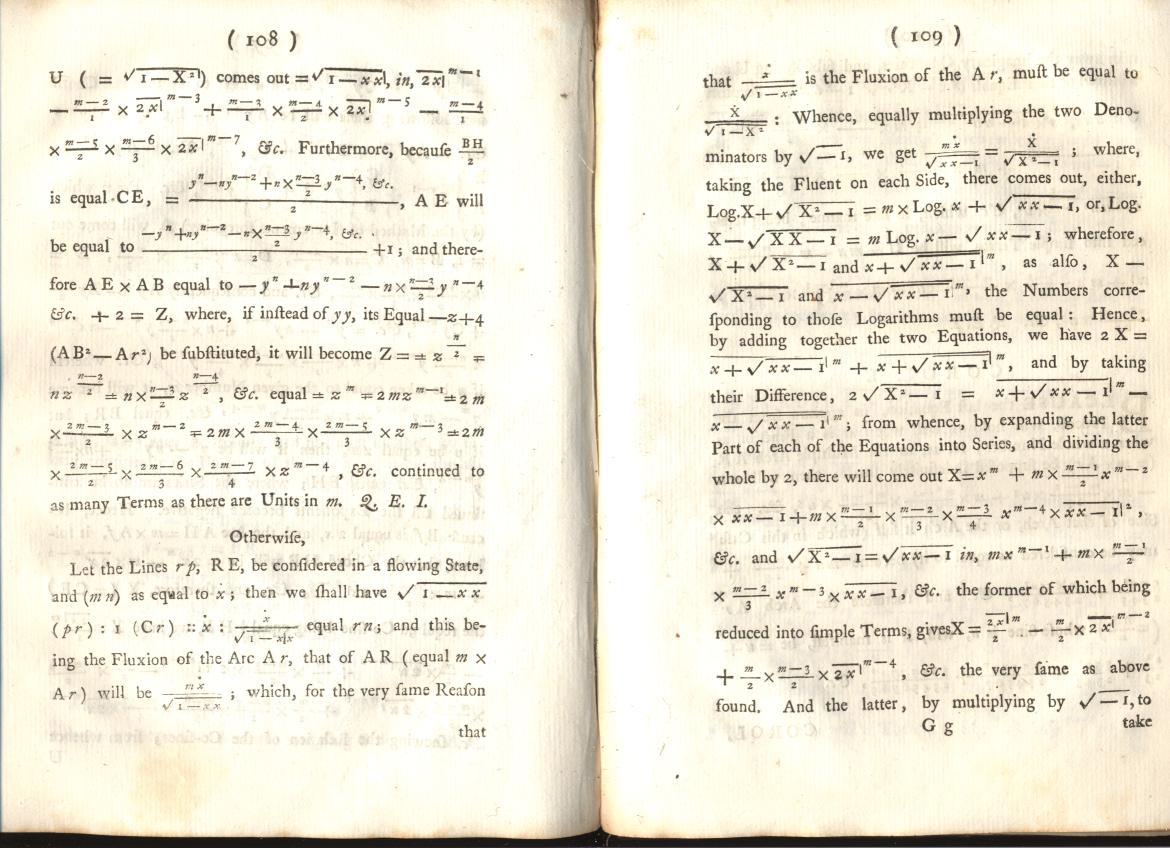 ( 108 )
U ( = √1 — X²|) comes out = √1 — xx|, in, 2x|^m—1
— m—2/1 × 2x|^m—3 + m—3/1 × m—4/2 × 2x|^m—5 — m—4/1
× m—5/2 × m—6/3 × 2x|^m—7, &c. Furthermore, becauſe BH/2
is equal CE, = y^n—ny^n—2 + n × n—3/2 y^n—4, &c. / 2, A E will
be equal to —y^n + ny^n—2 — n × n—3/2 y^n—4, &c. / 2 + 1 ; and there-
fore A E × A B equal to — y^n + ny^n—2 — n × n—3/2 y^n—4
&c. + 2 = Z, where, if inſtead of yy, its Equal —z+4
(AB²—Ar²) be ſubſtituted, it will become Z = ± z^n/2 ∓
nz^n—2/2 ± n × n—3/2 z^n—4/2, &c. equal ± z^m ∓ 2mz^m—1 ± 2m
× 2m—3/2 × z^m—2 ∓ 2m × 2m—4/3 × 2m—5/3 × z^m—3 ± 2m
× 2m—5/2 × 2m—6/3 × 2m—7/4 × z^m—4, &c. continued to
as many Terms as there are Units in m. Q. E. I.
Otherwiſe,
Let the Lines rp, R E, be conſidered in a flowing State,
and (m n) as equal to ẋ ; then we ſhall have √1 — xx
(pr) : 1 (Cr) :: ẋ : ẋ/√1 — x|x equal rn; and this be-
ing the Fluxion of the Arc A r, that of AR (equal m ×
A r) will be mẋ/√1 — xx ; which, for the very ſame Reaſon
that
( 109 )
that ẋ/√1 — xx is the Fluxion of the A r, muſt be equal to
Ẋ/√1 — X² : Whence, equally multiplying the two Deno-
minators by √—1, we get mẋ/√xx—1 = Ẋ/√X²—1 ; where,
taking the Fluent on each Side, there comes out, either,
Log.X+√X²—1 = m × Log. x + √xx — 1, or, Log.
X—√XX—1 = m Log. x — √xx — 1 ; wherefore,
X + √X²—1 and x + √xx — 1|^m, as alſo, X —
√X²—1 and x — √xx — 1|^m, the Numbers corre-
ſponding to thoſe Logarithms muſt be equal : Hence,
by adding together the two Equations, we have 2 X =
x + √xx — 1|^m + x + √xx — 1|^m, and by taking
their Difference, 2 √X² — 1 = x + √xx — 1|^m —
x — √xx — 1|^m ; from whence, by expanding the latter
Part of each of the Equations into Series, and dividing the
whole by 2, there will come out X=x^m + m × m—1/2 x^m—2
× xx — 1 + m × m—1/2 × m—2/3 × m—3/4 x^m—4 × xx — 1|²,
&c. and √X²—1 = √xx—1 in, mx^m—1 + m × m—1/2
× m—2/3 x^m—3 × xx — 1, &c. the former of which being
reduced into ſimple Terms, givesX = 2x|^m/2 — m/2 × 2x|^m—2
+ m/2 × m—3/2 × 2x|^m—4, &c. the very ſame as above
found. And the latter, by multiplying by √—1, to
G g take